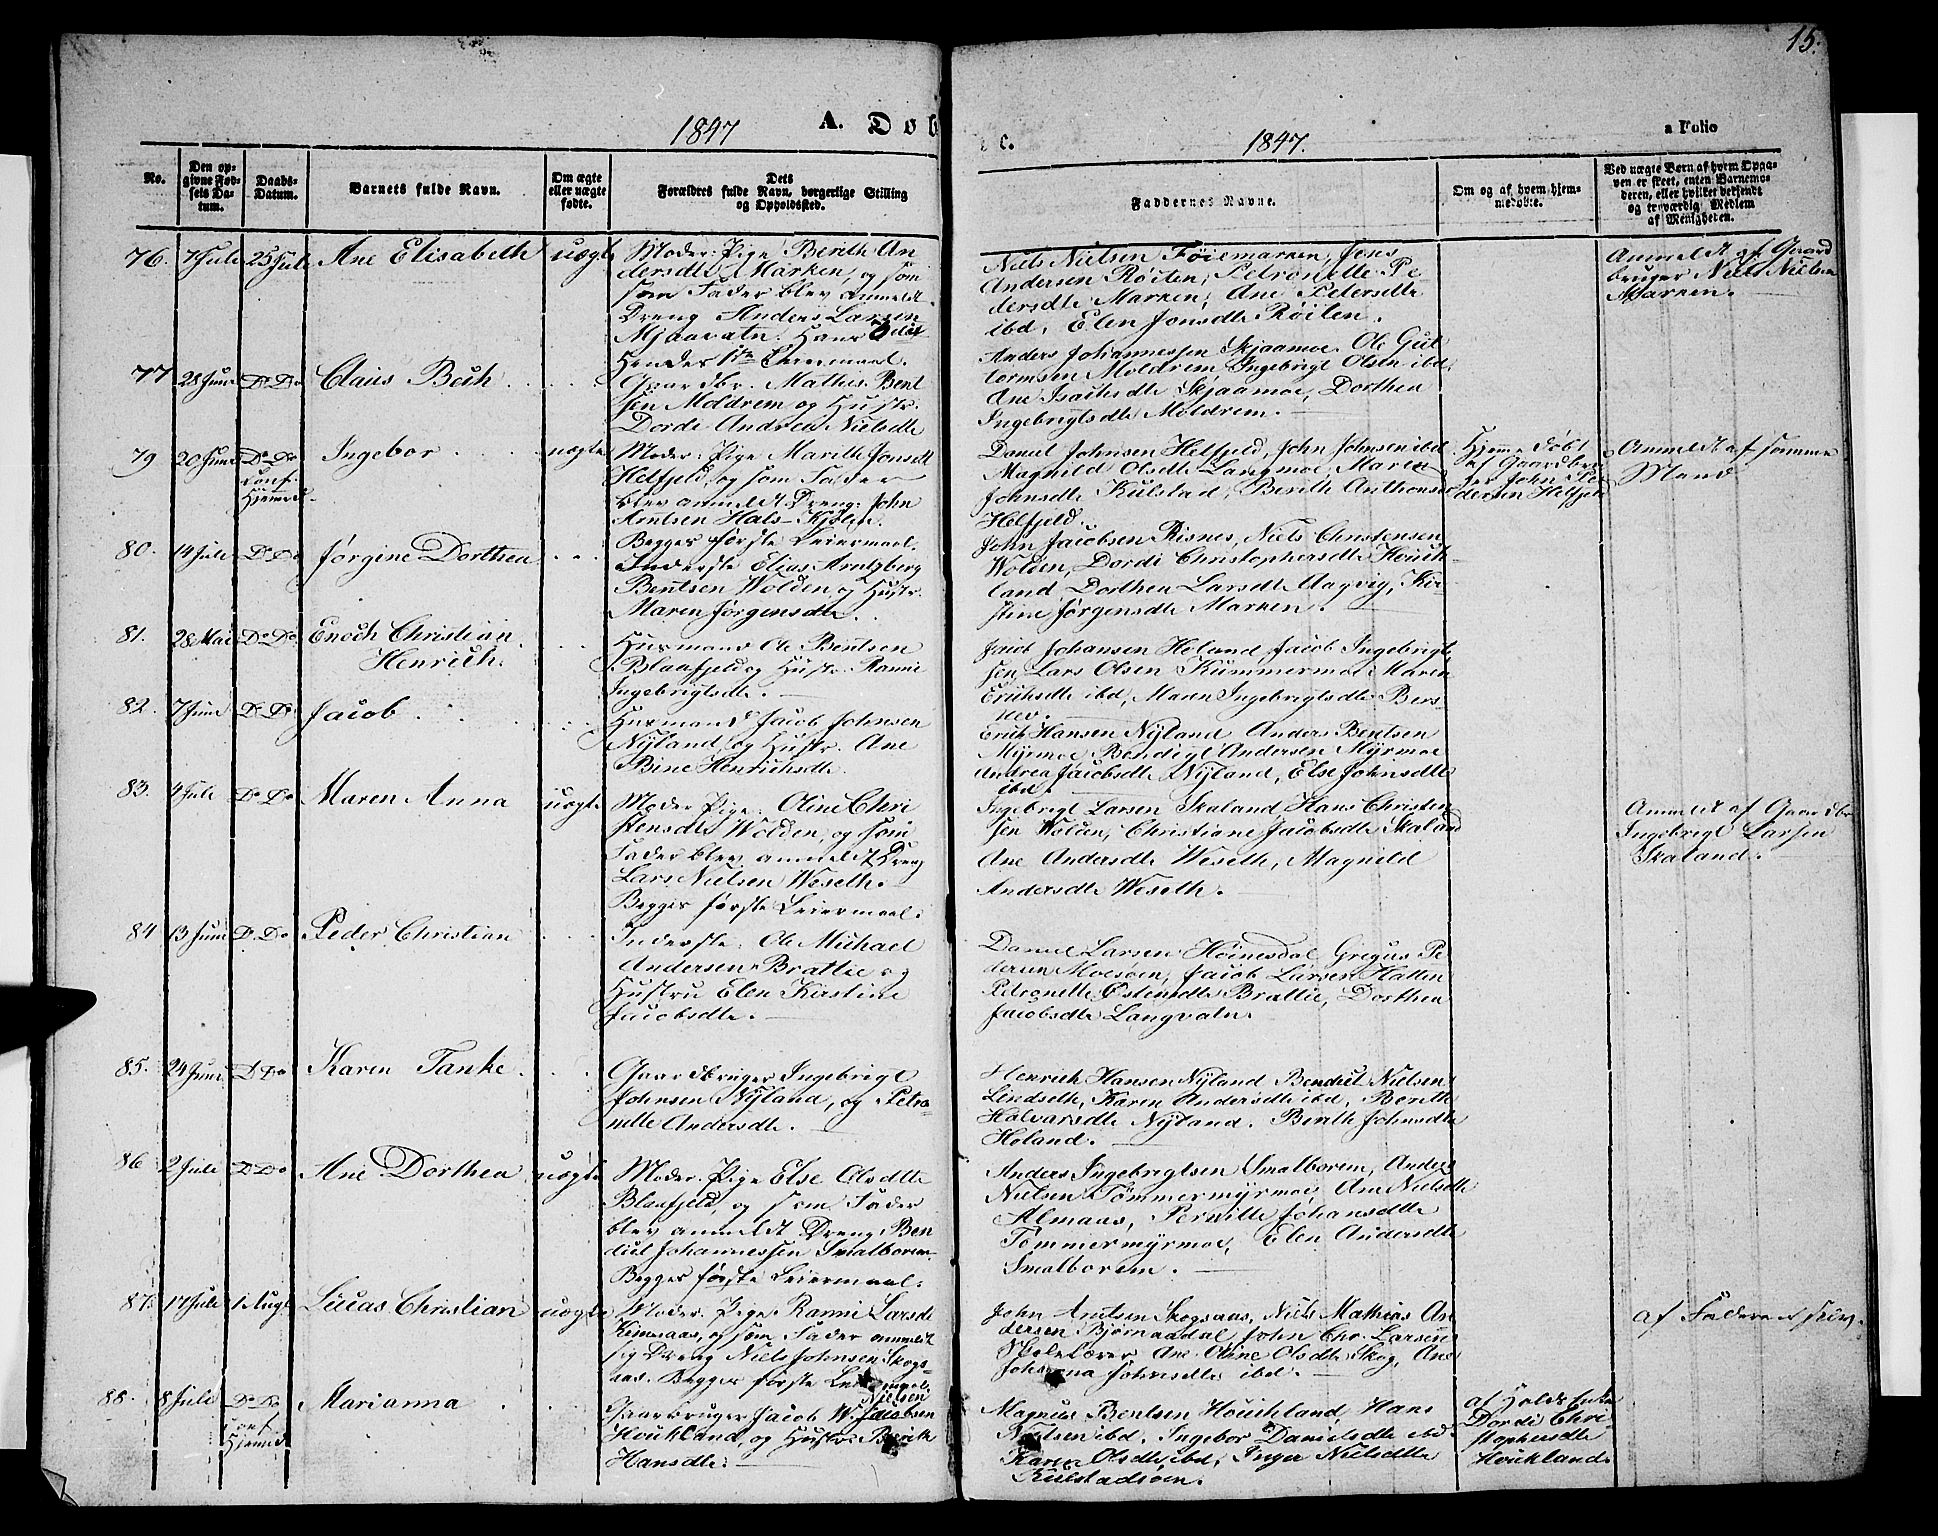 15.
1847
A. Døb
e.
1847.
a Folio
No.
Den opgivne Fødsels Datum.
Daabs-Datum.
Barnets fulde Navn.
Om ægte eller uægte fødte.
Dets Forældres fulde Navn, borgerlige Stilling og Opholdssted.
Faddernes Navne.
Om og af hvem hjemmedøbt.
Ved uægte Børn af hvem Opgaven er skeet, enten Barnemoderen, eller hvilket bekjendt og troværdig Medlem af Menigheden.
76. 7 Juli 25 Juli Ane Elisabeth uægte
Moder: Pige Berith An
dersdtr Marken, og som
som Fader blev anmeldt
Dreng Anders Larsen
Mjaavatn. Hans
Hendes 1ste Leiermaal.
Niels Nielsen Føiemarken, Jens
Andersen Røiten, Petronelle Pe
dersdtr Marken, Ane Petersdtr
ibd, Elen Jonsdtr Røiten.
Anmeldt af Gaard
bruger Niels Nielsen
Marken.
77 28 Juni Do Do Claus Beck
Gaardbr. Mathis Bent
sen Moldrem og Hustr.
Dordi Andrea Nielsdtr
Anders Johannessen Skjaamoe. Ole Gut
tormsen Moldrem, Ingebrigt Olsen ibd,
Ane Isaksdtr Skjaamoe, Dorthea
Ingebrigtsdtr Moldrem.
79 20 Juni Do Do Ingebor uægte
conf.
Hjemmed.
Moder: Pige Marith Jonsdtr
Helfjeld og som Fader
blev anmeldt Dreng: John
Arntsen Hals-Kjølen.
Begges første Leiermaal.
Daniel Johnsen Helfjeld, John Johnsen ibd
Magnild Olsdtr Langmoe, Maren
Johnsdtr Kulstad, Berith Anthonsdtr
Helfjeld.
Hjemmedøbt
af Gaardbru
ger John Pe
dersen Helfjeld
Anmeldt af samme
Mand
80. 14 Juli Do Do Jørgine Dorthea
Inderste Elias Arntzberg
Bentsen Wolden og Hustr.
Maren Jørgensdtr
John Jacobsen Risnes, Niels Christensen
Wolden, Dordi Christophersdtr Houk-
land, Dorthea Larsdtr Aagvig, Kir
stine Jørgensdtr Marken.
81. 28 Mai Do Do Enoch Christian
Henrich.
Husmand Ole Bentsen
Blaafjeld og Hustr. Ranni
Ingebrigtsdtr.
Jacob Johansen Holand, Jacob Ingebrigt
sen, Lars Olsen Kummermoe, Maren
Erichsdtr ibd, Maren Ingebrigtsdtr Bers-
nev.
82. 7 Juni Do Do Jacob
Husmand Jacob Johnsen
Nyland og Hustr. Ane
Bine Henrichsdtr.
Erich Hansen Nyland Anders Bentsen
Myrmoe, Bendigt Andersen Myrmoe
Andrea Jacobsdtr Nyland, Else Johnsdtr
ibd.
83. 4 Juli Do Do Maren Anna uægte
Moder: Pige: Oline Chri
stensdtr Wolden, og som
Fader blev anmeldt Dreng
Lars Nielsen Weseth.
Begges første Leiermaal.
Ingebrigt Larsen Skaland Hans Christen
sen Wolden, Christiane Jacobsdtr Skaland
Ane Andersdtr Weseth, Magnild
Andersdtr Weseth.
Anmeldt af Gaardbr
Ingebrigt Larsen
Skaland.
84 13 Juni Do Do Peder Christian
Inderste: Ole Michael
Andersen Brattlie og
Hustru Elen Kirstine
Jacobsdtr.
Daniel Larsen Høinesdal Gregus Pe
dersen Moesøen, Jacob Larsen Hatten
Petronelle Østensdtr Brattlie, Dorthea
Jacobsdtr Langvatn.
85. 24 Juni Do Do Karen Tanke
Gaardbruger Ingebrigt
Johnsen Nyland, og Petro-
nelle Andersdtr.
Henrich Hansen Nyland Bendict Nielsen
Lindseth, Karen Andersdtr ibd, Berith
Halvarsdtr Nyland. Berith Johnsdtr
Holand.
86 2 Juli Do Do Ane Dorthea uægte
Moder: Pige Else Olsdtr
Blaafjeld, og som Fader
blev anmeldt Dreng Ben
dict Johannessen Smalborem.
Begges første Leiermaal.
Anders Ingebrigtsen Smalborem, Anders
Nielsen Tømmermyrmoe, Ane Nielsdtr
Almaas, Pernille Johansdtr
Tømmermyrmoe, Elen Andersdtr
Smalborem.
87. 17 Juli 1 Augt Lucas Christian uægte
Moder: Pige: Ranni Larsdtr
Kimsaas, og som Fader anmeldt
sig Dreng Niels Johnsen Skogs-
aas. Begges første Leiermaal.
John Arntsen Skogsaas, Niels Mathias An
dersen Bjørnaadal, John Chr. Larsen
Skolelærer Ane Oline Olsdtr Skog, Ane
Johanna Johnsdtr ibd.
af Faderen selv.
88. 8 Juli Do Do Marianna
conf
Hjemmed
Nielsen
Gaarbruger Jacob W. Jacobsen
Houkland, og Hustr. Berith
Hansdtr.
Magnus Bentsen Houckland Hans
Nielsen ibd, Ingebor Danielsdtr ibd.
Karen Olsdtr ibd, Inger Nielsdtr
Kulstadsøen.
af Holds Enke
Dordi Chri
stophersdtr
Houkland.